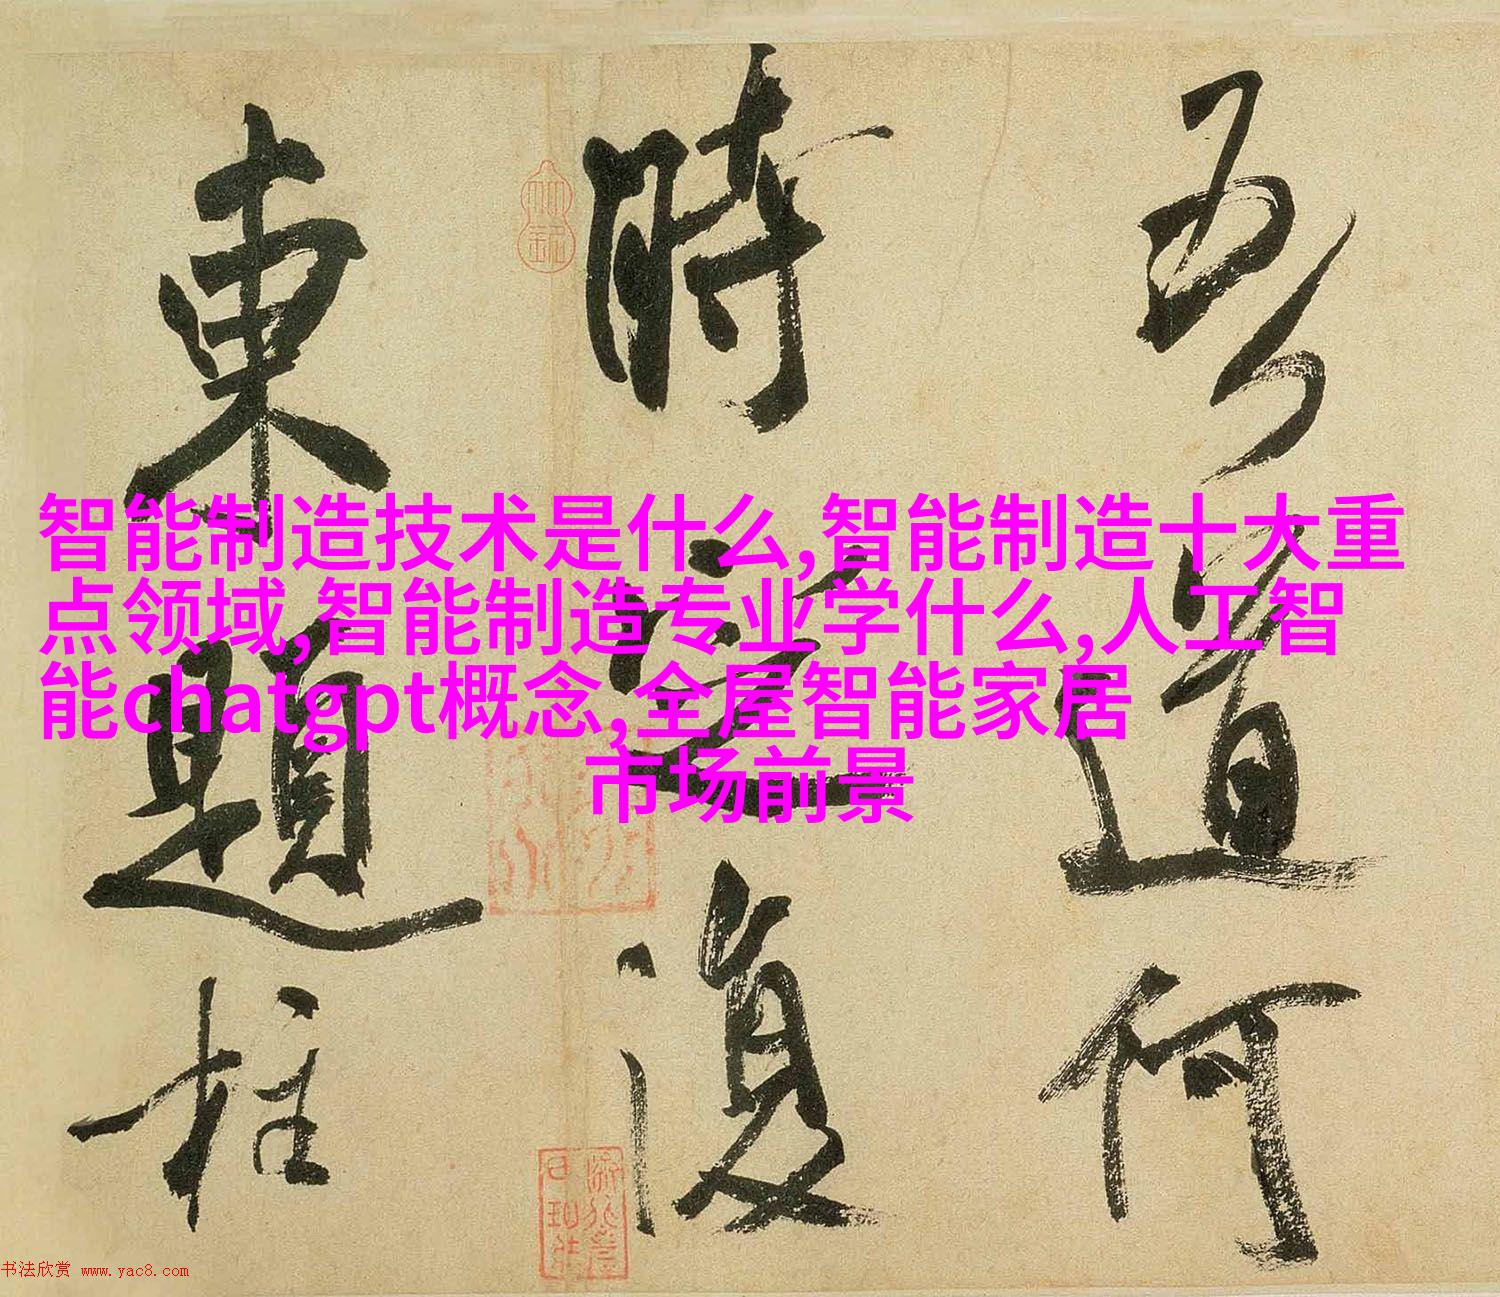 吾道何
時定復
東題柱
智能制造技术是什么,智能制造十大重
点领域,智能制造专业学什么,人工智
能chatgpt概念,全屋智能家居
市场前景
书法欣赏 www.yac8.com